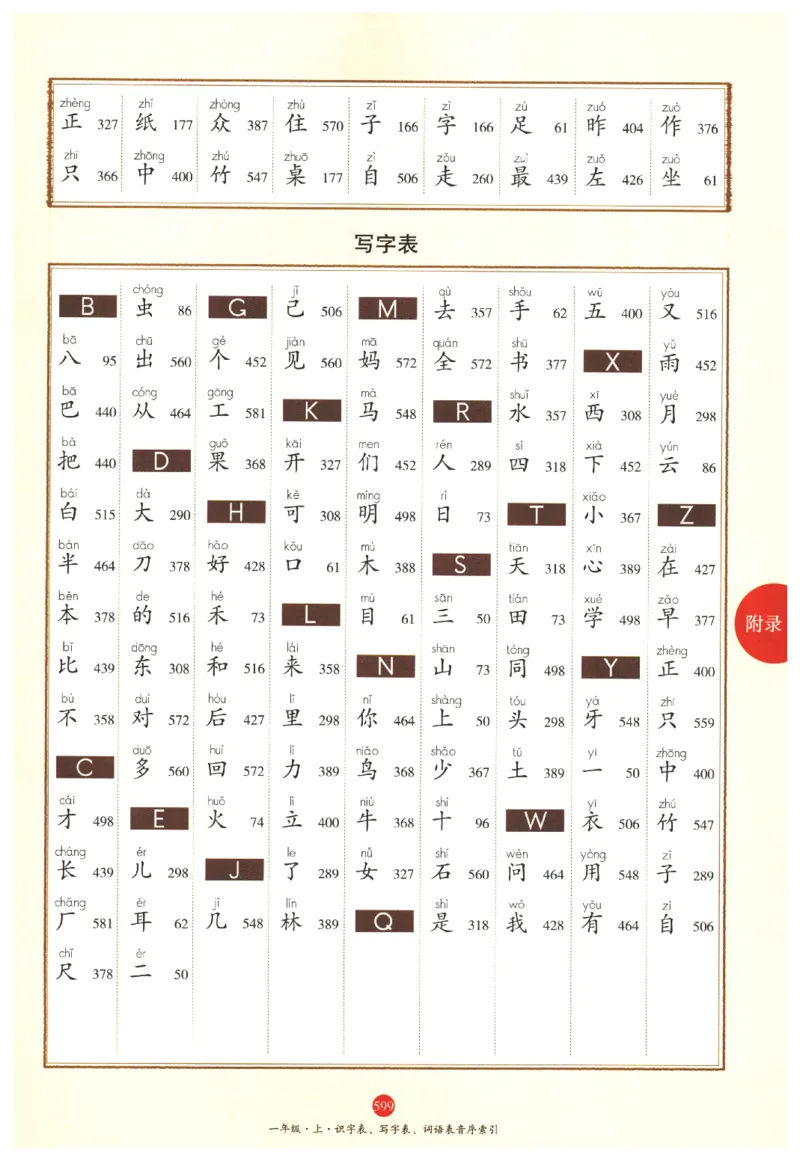 zhèng
正 327
zhī
只 366
zhǐ
纸 177
zhōng
中 400
zhòng
众 387
zhú
竹 547
zhù
住 570
zhuō
桌 177
zǐ
子 166
zì
自 506
zì
字 166
zǒu
走 260
zú
足 61
zuì
最 439
zuó
昨 404
zuǒ
左 426
zuò
作 376
zuò
坐 61
写字表
B
bā
八 95
bā
巴 440
bǎ
把 440
bái
白 515
bàn
半 464
běn
本 378
bǐ
比 439
bù
不 358
C
cái
才 498
cháng
长 439
chǎng
厂 581
chǐ
尺 378
chóng
虫 86
chū
出 560
cóng
从 464
D
dà
大 290
dāo
刀 378
de
的 516
dōng
东 308
duì
对 572
duō
多 560
E
ér
儿 298
ěr
耳 62
èr
二 50
G
gè
个 452
gōng
工 581
guǒ
果 368
H
hǎo
好 428
hé
禾 73
hé
和 516
hòu
后 427
huí
回 572
huǒ
火 74
J
jǐ
几 548
jǐ
己 506
jiàn
见 560
K
kāi
开 327
kě
可 308
kǒu
口 61
L
lái
来 358
lǐ
里 298
lì
力 389
lì
立 400
le
了 289
lín
林 389
M
mā
妈 572
mǎ
马 548
men
们 452
míng
明 498
mù
木 388
mù
目 61
N
nǐ
你 464
niǎo
鸟 368
niú
牛 368
nǚ
女 327
Q
qù
去 357
quán
全 572
R
rén
人 289
rì
日 73
S
sān
三 50
shān
山 73
shàng
上 50
shǎo
少 367
shí
十 96
shí
石 560
shì
是 318
shǒu
手 62
shū
书 377
shuǐ
水 357
sì
四 318
T
tiān
天 318
tián
田 73
tóng
同 498
tóu
头 298
tǔ
土 389
W
wèn
问 464
wǒ
我 428
wǔ
五 400
X
xī
西 308
xià
下 452
xiǎo
小 367
xīn
心 389
xué
学 498
Y
yá
牙 548
yī
一 50
yī
衣 506
yòng
用 548
yǒu
有 464
yòu
又 516
yǔ
雨 452
yuè
月 298
yún
云 86
Z
zài
在 427
zǎo
早 377
zhèng
正 400
zhī
只 559
zhōng
中 400
zhú
竹 547
zǐ
子 289
zì
自 506
附录
599
一年级·上·识字表、写字表、词语表音序索引